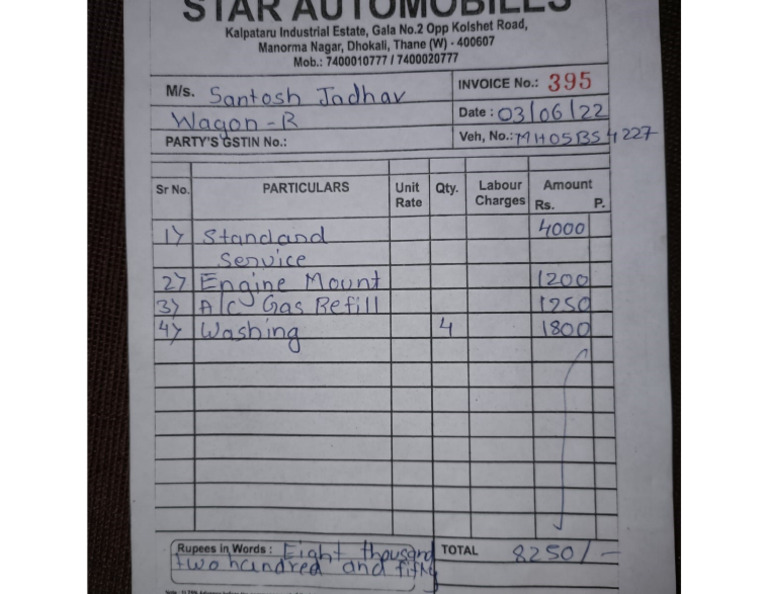 STAR AUTOMOBILES
Kalpataru Industrial Estate, Gala No.2 Opp Kolshet Road,
Manorma Nagar, Dhokali, Thane (W) - 400607
Mob.: 7400010777 / 7400020777
M/s. Santosh Jadhav
INVOICE No.: 395
Wagon-R
Date : 03/06/22
PARTY'S GSTIN No.:
Veh, No.: MH05BS4227
Sr No. PARTICULARS Unit Rate Qty. Labour Charges Amount Rs. P.
1) Standand 4000
Service
2) Engine Mount 1200
3) A/C Gas Refill 1250
4) Washing 4 1800
Rupees in Words : Eight thousand
two hundred and fifty
TOTAL 8250/-